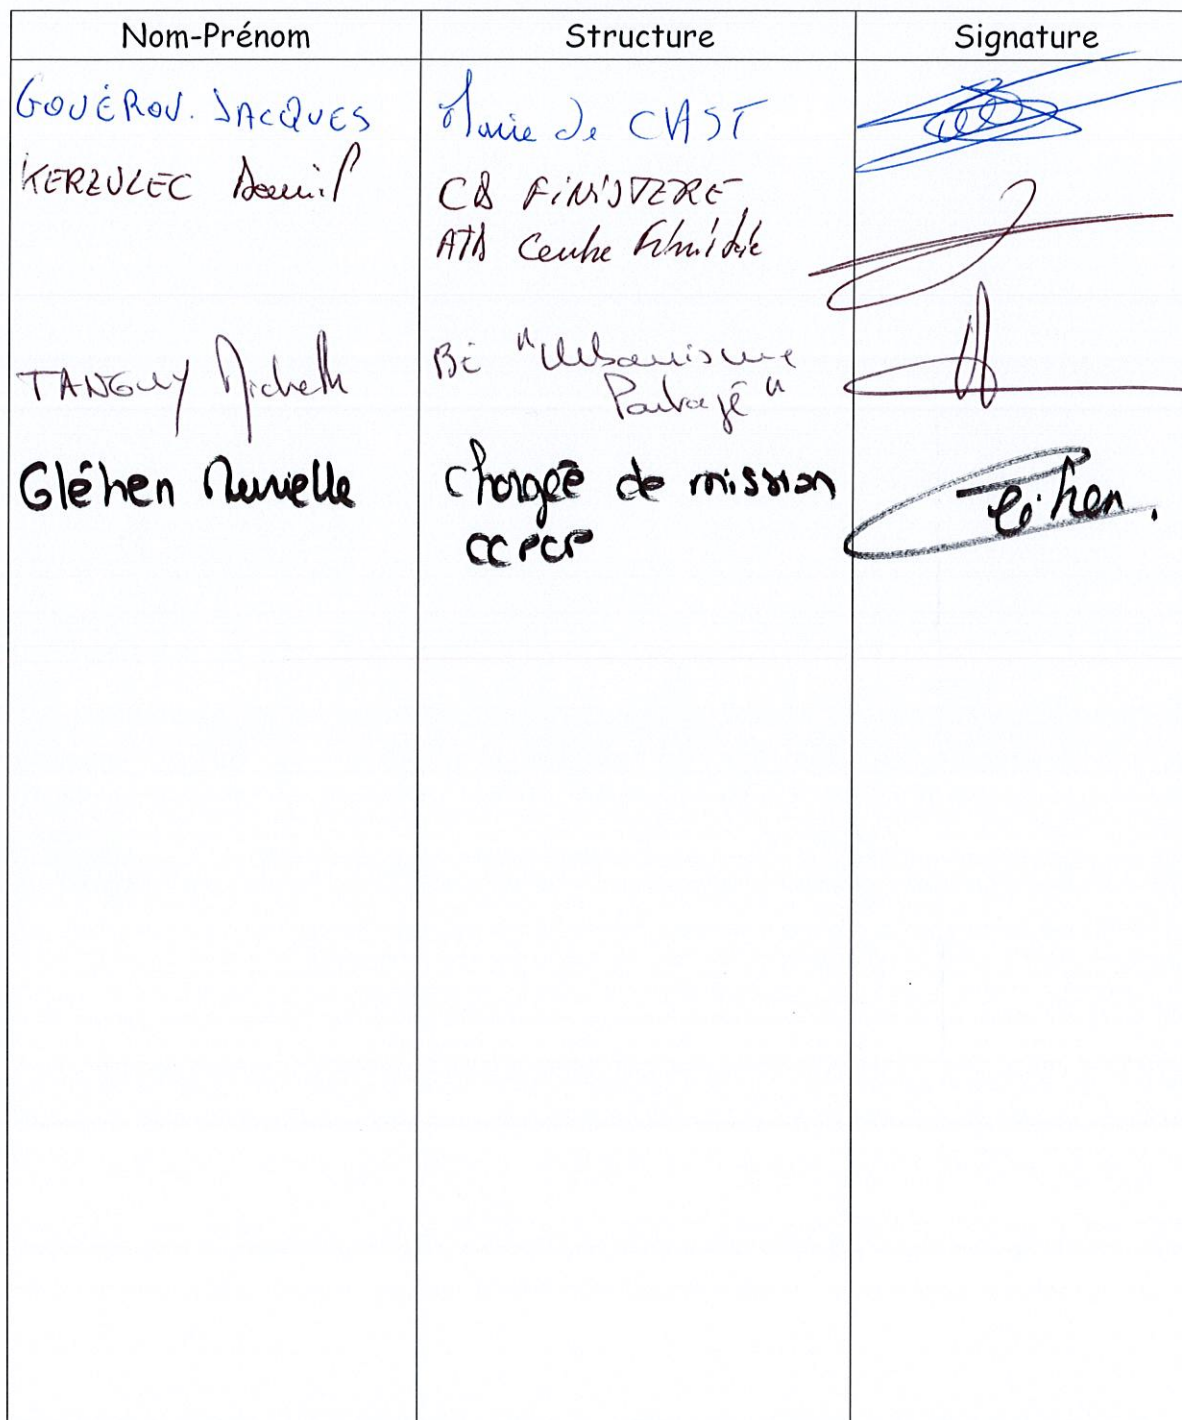 Nom-Prénom Structure Signature
GOUÉROU. JACQUES Mairie de CAST
KERZULEC Daniel CD FINISTERE
ATD Centre Finistère
TANGUY Michelle BE "Urbanisme
Partagé"
Gléhen Murielle chargée de mission
CCPCP